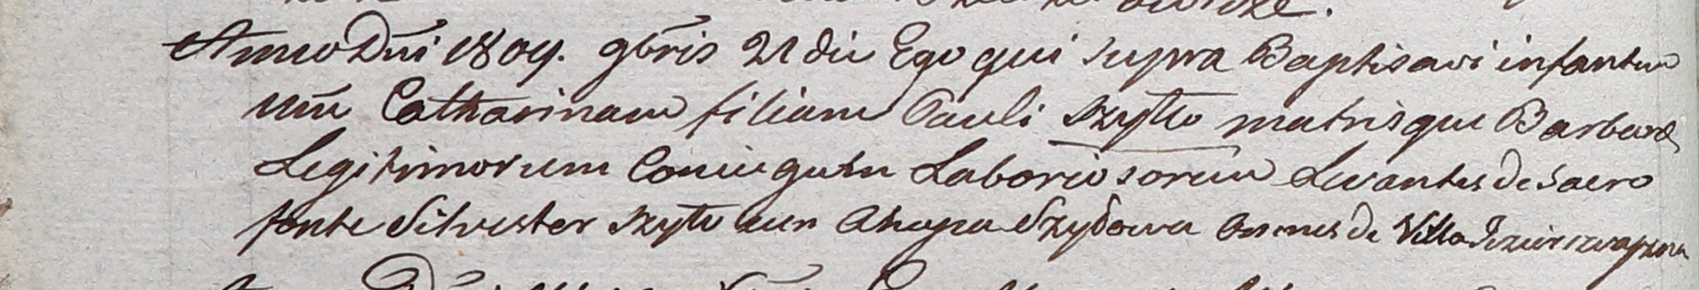 Anno Dni 1809. 9bris 21 die Ego qui supra Baptisavi infantem
nõe Catharinam filiam Pauli Szyłło matrisque Barbara
Legitimorum Coniugum Laboriosorum Levantes de Sacro
fonte Silvester Szyło cum Ahapa Szydowa omnes de Villa